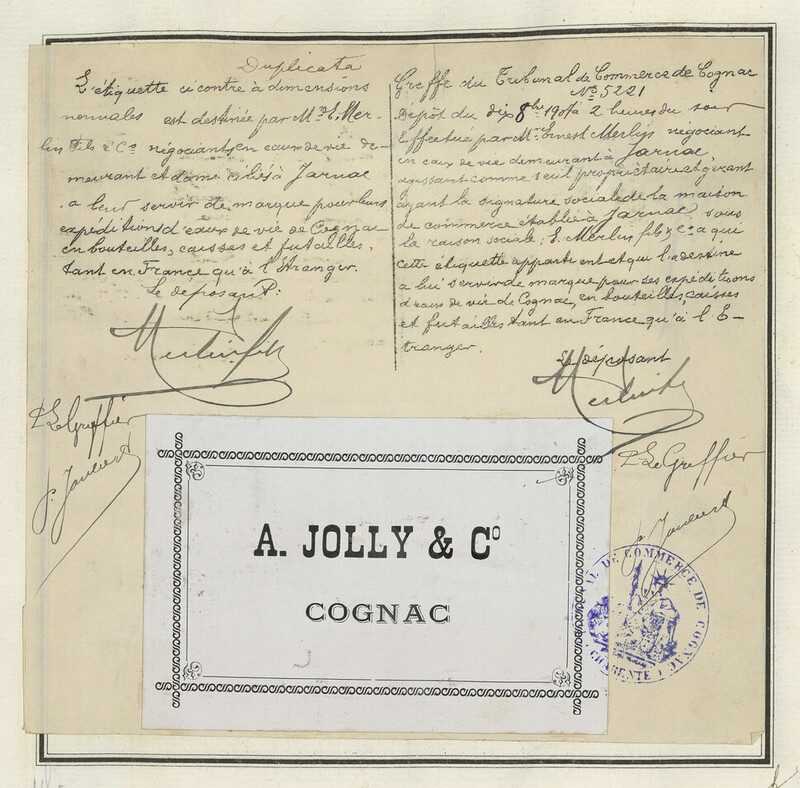 Duplicata
L'étiquette ci contre à dimensions
normales est destinée par Mrs E. Mer-
lin fils & Co négociants en eaux de vie de-
meurant et domiciliés à Jarnac
a leur servir de marque pour leurs
expéditions d'eaux de vie de Cognac
en bouteilles, caisses et futailles,
tant en France qu'à l'Étranger.
Le déposant:
Merlin fils
P. Le Greffier
Greffe du Tribunal de Commerce de Cognac
No 5221
Dépôt du dix 8bre à 2 heures du soir
Effectué par Mr Ernest Merlin négociant
en eaux de vie demeurant à Jarnac
agissant comme seul propriétaire et gérant
ayant la signature sociale de la maison
de commerce établie à Jarnac sous
la raison sociale: E. Merlin fils & Co a qui
cette étiquette appartient et qui la destine
a lui servir de marque pour ses expéditions
d'eaux de vie de Cognac, en bouteilles, caisses
et futailles tant en France qu'à l'E-
tranger.
Le déposant
P. Le Greffier
A. JOLLY & Co
COGNAC
DE COMMERCE DE COGNAC
CHARENTE